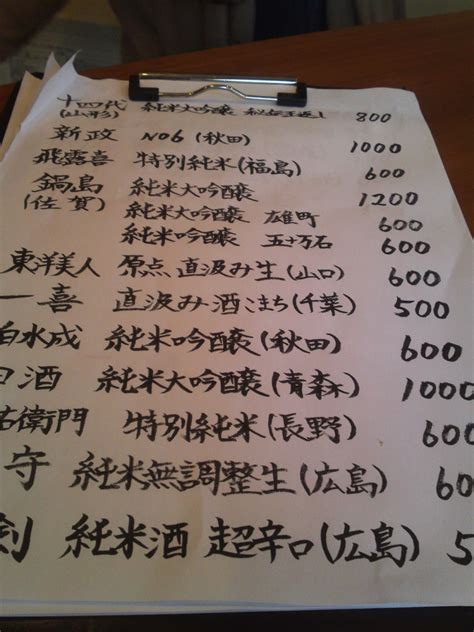 十四代 純米大吟醸 800
(山形)
新政 NO6 (秋田) 1000
飛露喜 特別純米(福島) 600
鍋島 純米大吟醸 1200
(佐賀) 純米大吟醸 雄町 600
純米吟醸 五十万石 600
東洋美人 原点 直汲み生(山口) 600
一喜 直汲み酒こまち(千葉) 500
白水成 純米吟醸(秋田) 600
酒 純米大吟醸(青森) 1000
右衛門 特別純米(長野) 600
守 純米無調整生(広島) 60
剣 純米酒 超辛口(広島) 5